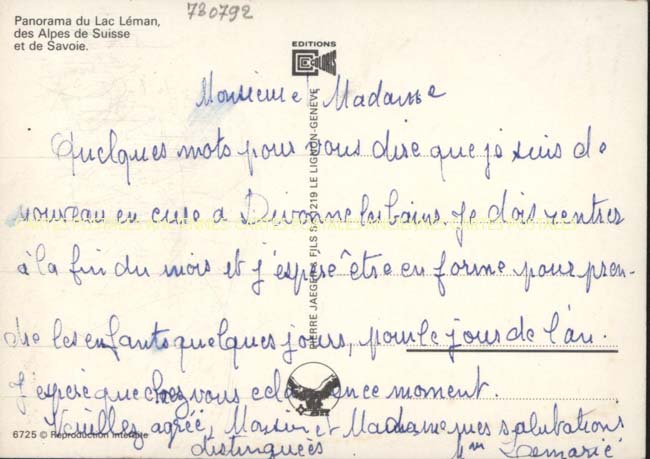 730792
Panorama du Lac Léman,
des Alpes de Suisse
et de Savoie.
EDITIONS
Monsieur et Madame
Quelques mots pour vous dire que je suis de
nouveau en cure a Divonne les bains. Je dois rentrer
à la fin du mois et j'espère être en forme pour pren-
dre les enfants quelques jours, pour le jour de l'an.
J'espère que chez vous cela en ce moment.
Veuillez agréer, Monsieur et Madame mes salutations
distinguées Mme Lemarié
PIERRE JAEGER & FILS S.A. 1219 LE LIGNON-GENÈVE
6725 © Reproduction interdite